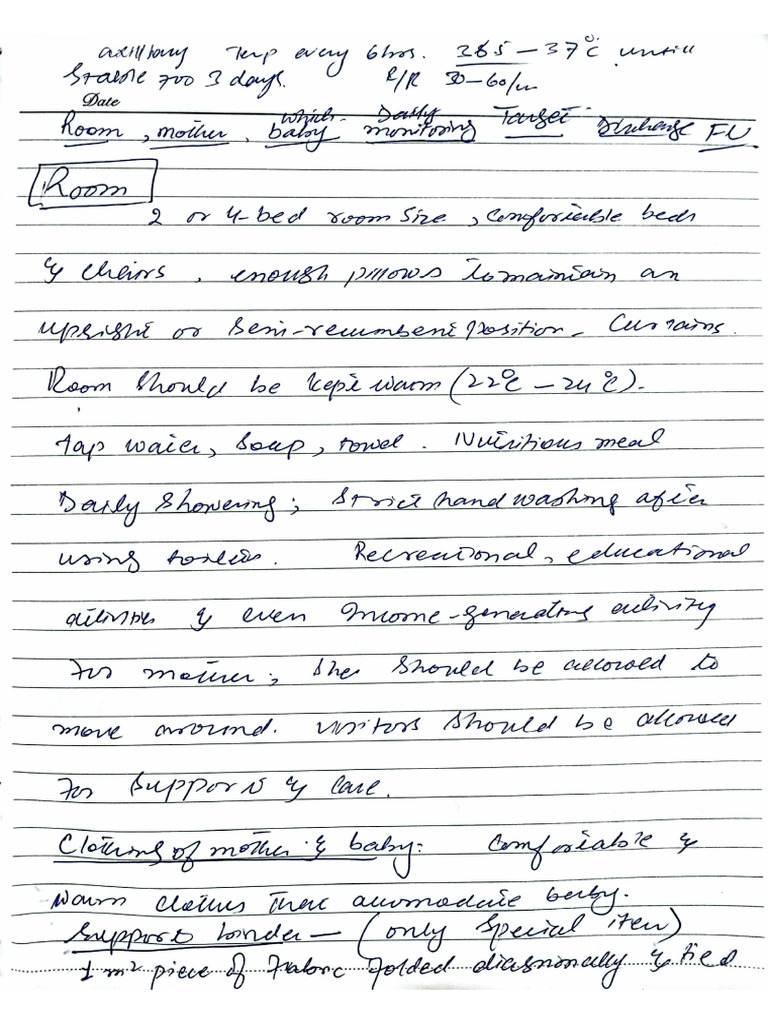 axillary Temp every 6 hrs. 365 – 37°C until
Stable for 3 days. R/R 30–60/m
Date
Room, mother, which baby Daily monitoring Target Discharge FU
Room
2 or 4-bed room size, comfortable beds
& chairs, enough pillows to maintain an
upright or semi-recumbent position. Curtains.
Room should be kept warm (22°C – 24°C).
Tap water, Soup, towel. Nutritious meal
Daily showering; Strict hand washing after
using toilets. Recreational, educational
activities & even Income-generating activity
for mother; She should be allowed to
move around. visitors should be allowed
for support & care.
Clothing of mother & baby: Comfortable &
warm clothes that acomodate baby.
Support binder – (only special item)
1 m² piece of Fabric Folded diagonally & tied